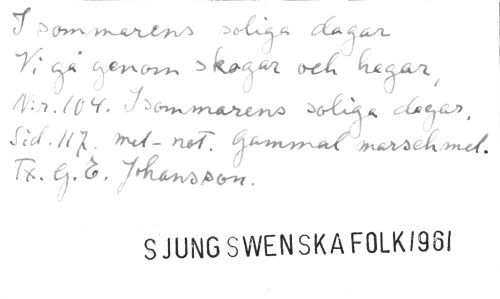 I sommarens soliga dagar
Vi gå genom skogar och hagar,
N:r. 104. I sommarens soliga dagar.
Sid. 117. mel-not. Gammal marschmel.
Tx. G. E. Johansson.
SJUNG SWENSKA FOLK 1961